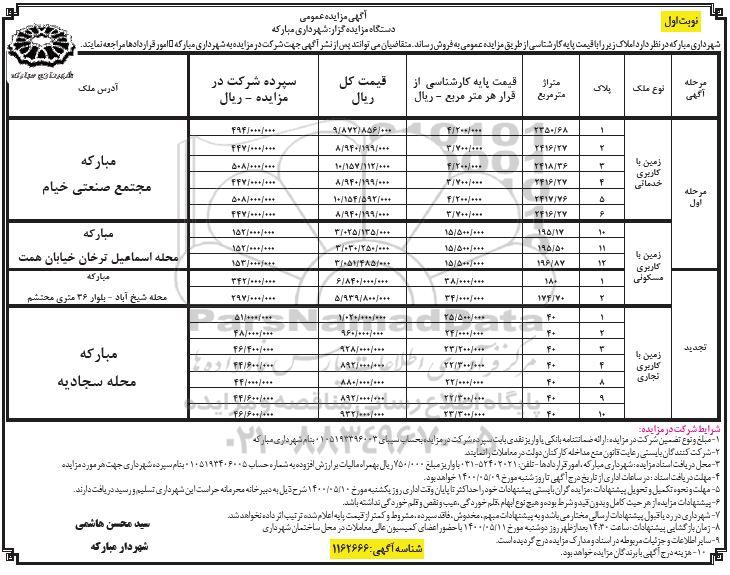 آگهی مزایده عمومی
نوبت اول
دستگاه مزایده گزار: شهرداری مبارکه
شهرداری مبارکه در نظر دارد املاک زیر را با قیمت پایه کارشناسی از طریق مزایده عمومی به فروش رساند. متقاضیان می توانند پس از نشر آگهی جهت شرکت در مزایده به شهرداری مبارکه امور قراردادها مراجعه نمایند.
شهرداری مبارکه
مرحله آگهی | نوع ملک | پلاک | متراژ مترمربع | قیمت پایه کارشناسی از قرار هر متر مربع - ریال | قیمت کل ریال | سپرده شرکت در مزایده - ریال | آدرس ملک
مرحله اول | زمین با کاربری خدماتی | ۱ | ۲۳۵۰/۶۸ | ۴/۲۰۰/۰۰۰ | ۹/۸۷۲/۸۵۶/۰۰۰ | ۴۹۴/۰۰۰/۰۰۰ | مبارکه مجتمع صنعتی خیام
۲ | ۲۴۱۶/۲۷ | ۳/۷۰۰/۰۰۰ | ۸/۹۴۰/۱۹۹/۰۰۰ | ۴۴۷/۰۰۰/۰۰۰
۳ | ۲۴۱۸/۳۶ | ۴/۲۰۰/۰۰۰ | ۱۰/۱۵۷/۱۱۲/۰۰۰ | ۵۰۸/۰۰۰/۰۰۰
۴ | ۲۴۱۶/۲۷ | ۳/۷۰۰/۰۰۰ | ۸/۹۴۰/۱۹۹/۰۰۰ | ۴۴۷/۰۰۰/۰۰۰
۵ | ۲۴۱۷/۷۶ | ۴/۲۰۰/۰۰۰ | ۱۰/۱۵۴/۵۹۲/۰۰۰ | ۵۰۸/۰۰۰/۰۰۰
۶ | ۲۴۱۶/۲۷ | ۳/۷۰۰/۰۰۰ | ۸/۹۴۰/۱۹۹/۰۰۰ | ۴۴۷/۰۰۰/۰۰۰
زمین با کاربری مسکونی | ۱۰ | ۱۹۵/۱۷ | ۱۵/۵۰۰/۰۰۰ | ۳/۰۲۵/۱۳۵/۰۰۰ | ۱۵۲/۰۰۰/۰۰۰ | مبارکه محله اسماعیل ترخان خیابان همت
۱۱ | ۱۹۵/۵۰ | ۱۵/۵۰۰/۰۰۰ | ۳/۰۳۰/۲۵۰/۰۰۰ | ۱۵۲/۰۰۰/۰۰۰
۱۲ | ۱۹۶/۸۷ | ۱۵/۵۰۰/۰۰۰ | ۳/۰۵۱/۴۸۵/۰۰۰ | ۱۵۳/۰۰۰/۰۰۰
تجدید | ۱ | ۱۸۰ | ۳۸/۰۰۰/۰۰۰ | ۶/۸۴۰/۰۰۰/۰۰۰ | ۳۴۲/۰۰۰/۰۰۰ | مبارکه محله شیخ آباد - بلوار ۳۶ متری محتشم
۲ | ۱۷۴/۷۰ | ۳۴/۰۰۰/۰۰۰ | ۵/۹۳۹/۸۰۰/۰۰۰ | ۲۹۷/۰۰۰/۰۰۰
زمین با کاربری تجاری | ۱ | ۴۰ | ۲۵/۵۰۰/۰۰۰ | ۱/۰۲۰/۰۰۰/۰۰۰ | ۵۱/۰۰۰/۰۰۰ | مبارکه محله سجادیه
۲ | ۴۰ | ۲۴/۰۰۰/۰۰۰ | ۹۶۰/۰۰۰/۰۰۰ | ۴۸/۰۰۰/۰۰۰
۳ | ۴۰ | ۲۳/۲۰۰/۰۰۰ | ۹۲۸/۰۰۰/۰۰۰ | ۴۶/۴۰۰/۰۰۰
۴ | ۴۰ | ۲۲/۳۰۰/۰۰۰ | ۸۹۲/۰۰۰/۰۰۰ | ۴۴/۶۰۰/۰۰۰
۸ | ۴۰ | ۲۲/۰۰۰/۰۰۰ | ۸۸۰/۰۰۰/۰۰۰ | ۴۴/۰۰۰/۰۰۰
۹ | ۴۰ | ۲۲/۳۰۰/۰۰۰ | ۸۹۲/۰۰۰/۰۰۰ | ۴۴/۶۰۰/۰۰۰
۱۰ | ۴۰ | ۲۳/۳۰۰/۰۰۰ | ۹۳۲/۰۰۰/۰۰۰ | ۴۶/۶۰۰/۰۰۰
ParsNamadData
پایگاه اطلاع رسانی مناقصه و مزایده
۰۲۱-۸۸۳۴۹۶۷۰-۵
شرایط شرکت در مزایده:
۱- مبلغ و نوع تضمین شرکت در مزایده: ارائه ضمانتنامه بانکی یا واریز نقدی بابت سپرده شرکت در مزایده بحساب سیبای ۰۱۰۵۱۹۳۳۹۶۰۰۳ بنام شهرداری مبارکه
۲- شرکت کنندگان بایستی رعایت قانون منع مداخله کارکنان دولت در معاملات را نمایند.
۳- محل دریافت اسناد مزایده: شهرداری مبارکه، امور قراردادها - تلفن: ۵۲۴۰۲۰۲۱-۰۳۱ با واریز مبلغ ۷۵۰/۰۰۰ ریال بهمراه مالیات بر ارزش افزوده به شماره حساب ۰۱۰۵۱۹۳۴۰۶۰۰۵ بنام شهرداری جهت هر مورد مزایده
۴- مهلت دریافت اسناد: در ساعات اداری از تاریخ درج آگهی تا روز شنبه مورخ ۱۴۰۰/۰۵/۰۹
۵- مهلت و نحوه تکمیل و تحویل پیشنهادات: مزایده گران بایستی پیشنهادات خود را حداکثر تا پایان وقت اداری روز یکشنبه مورخ ۱۴۰۰/۰۵/۱۰ شرح ذیل به دبیرخانه محرمانه حراست این شهرداری تسلیم و رسید دریافت دارند.
۶- پیشنهادات مزایده از هر حیث کامل و بدون قید و شرط بوده و هیچ نوع ابهام، قلم خوردگی، عیب و نقص و قلم خوردگی نداشته باشد.
۷- شهرداری در رد یا قبول پیشنهادات ارسالی مختار می باشد و به پیشنهادات مبهم، مخدوش، فاقد سپرده، مشروط و کمتر از قیمت پایه اعلام شده ترتیب اثر داده نخواهد شد.
۸- زمان بازگشایی پیشنهادات: ساعت ۱۴:۳۰ بعد از ظهر روز دوشنبه مورخ ۱۴۰۰/۰۵/۱۱ با حضور اعضای کمیسیون عالی معاملات در محل ساختمان شهرداری
۹- سایر اطلاعات و جزئیات مربوطه در اسناد و مدارک مزایده درج گردیده است.
۱۰- هزینه درج آگهی با برندگان مزایده خواهد بود.
شناسه آگهی: ۱۱۶۲۶۶۶
سید محسن هاشمی
شهردار مبارکه